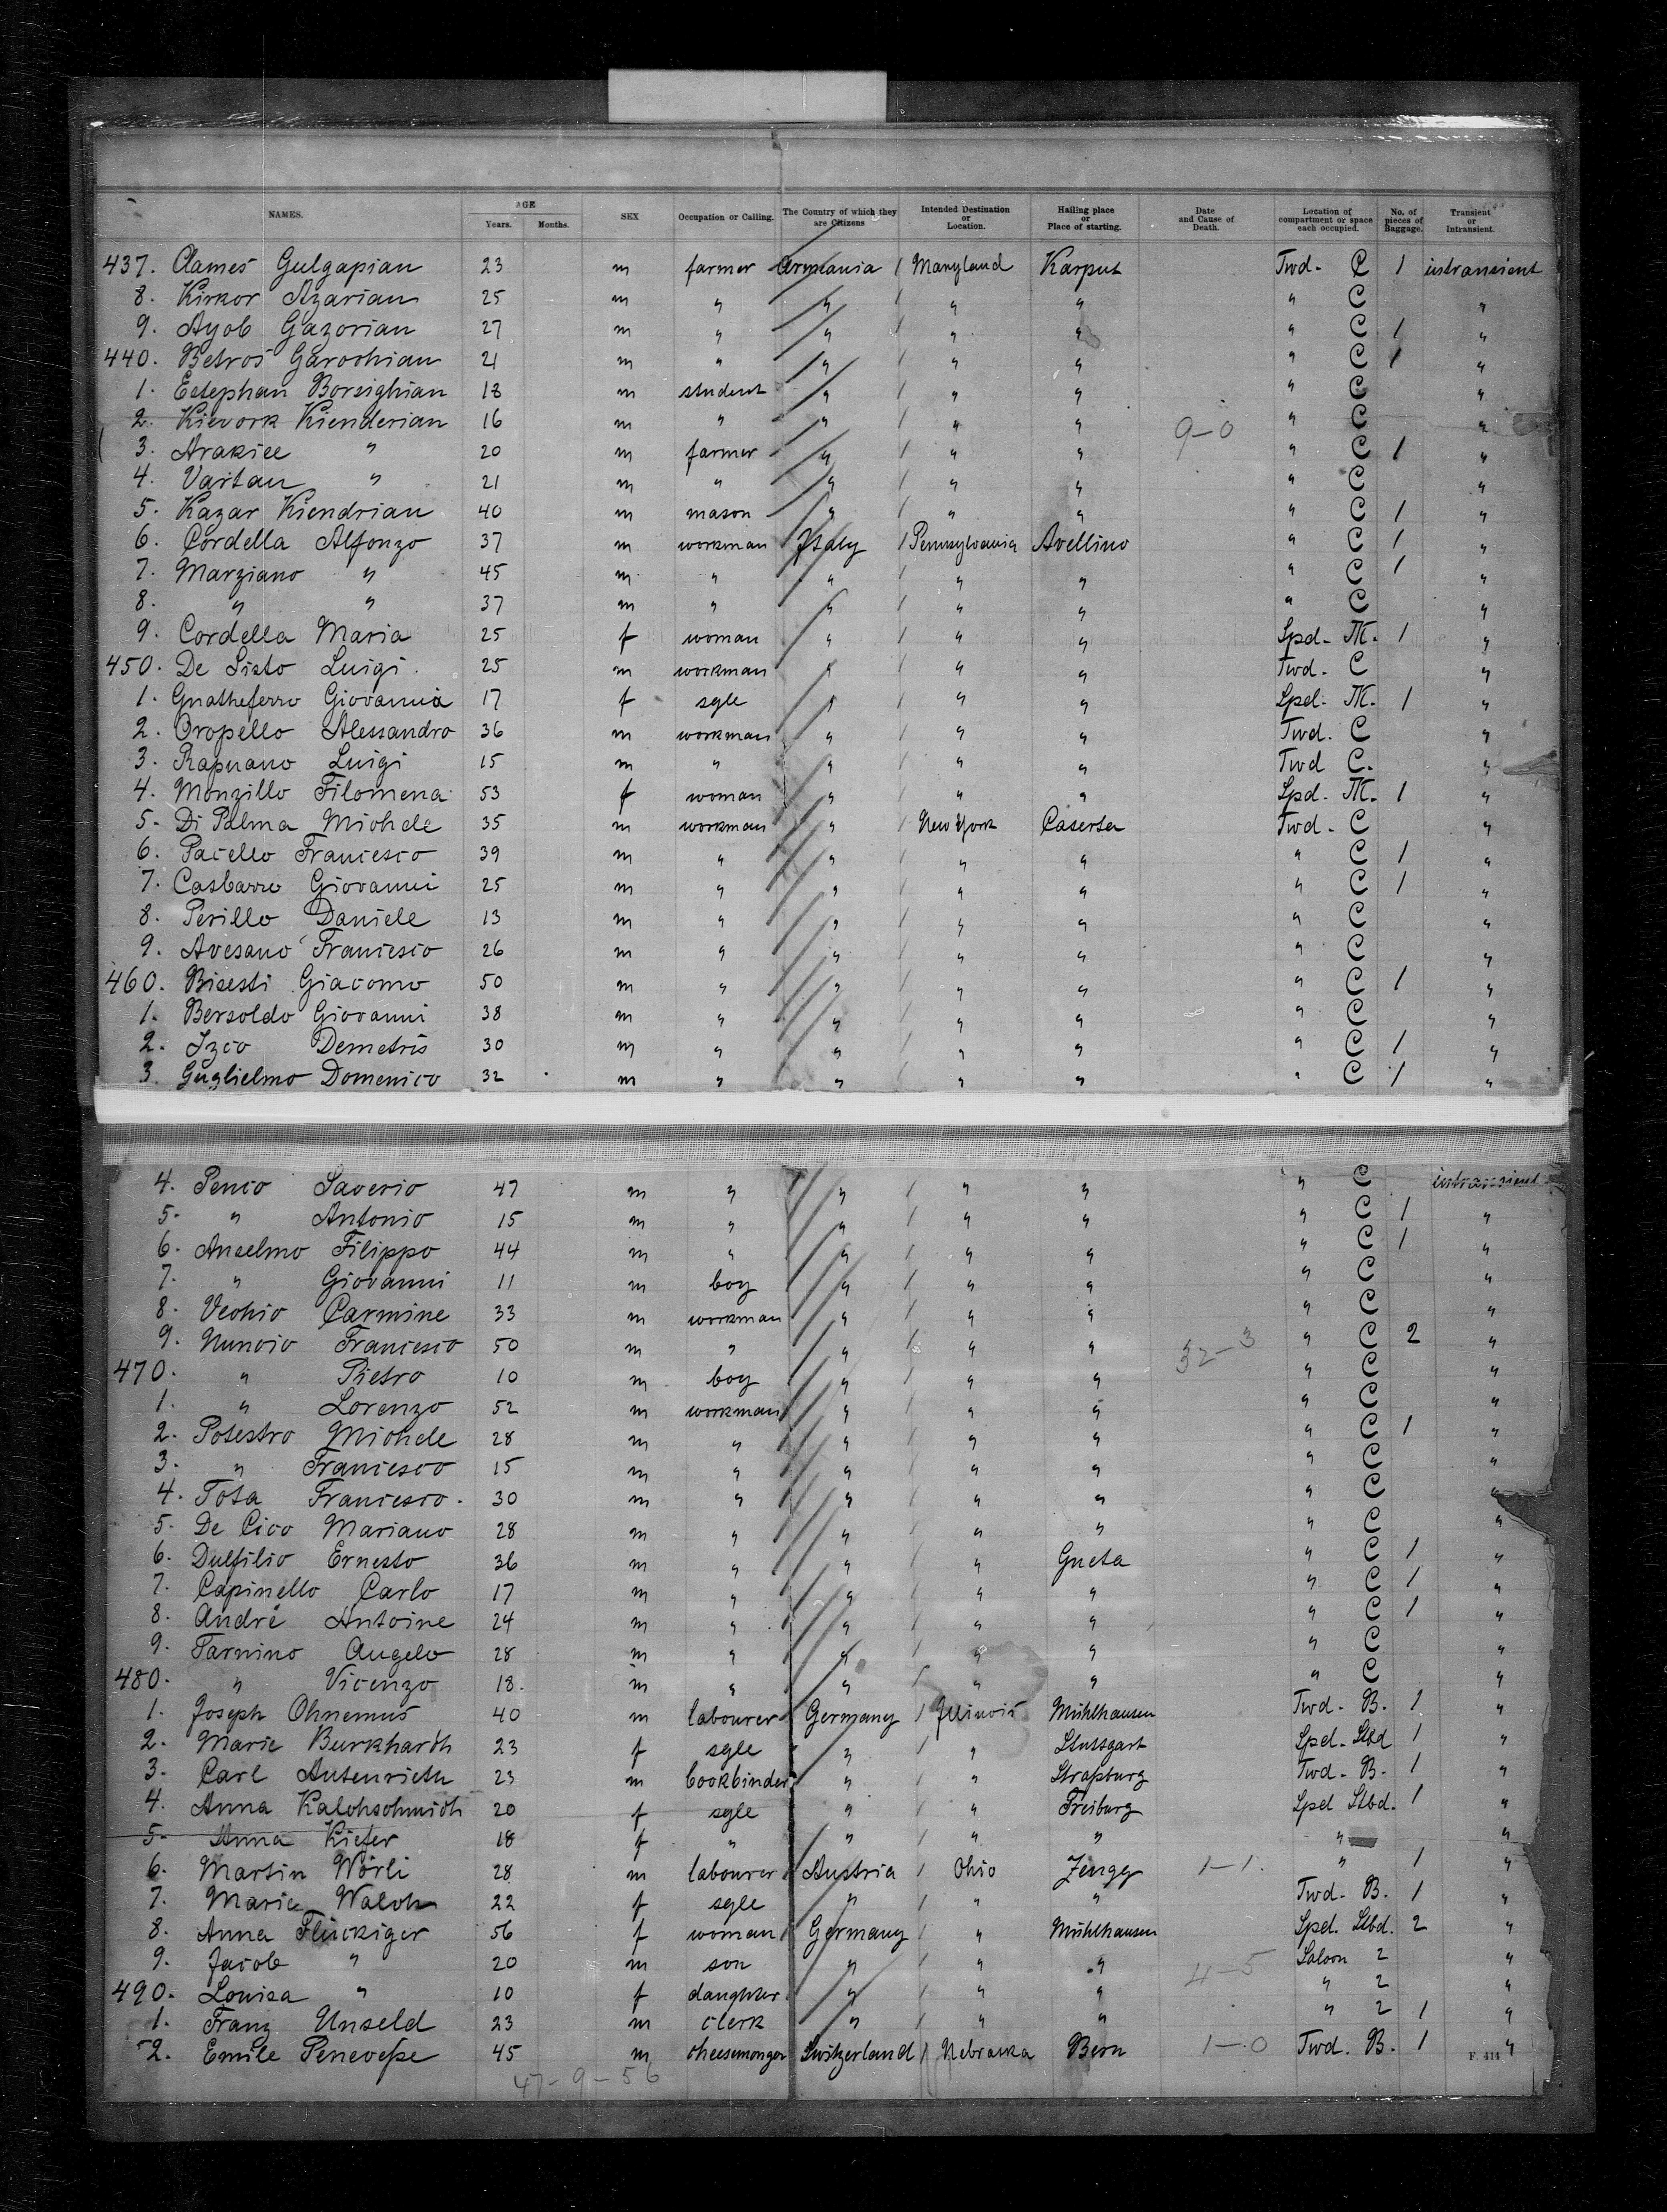 NAMES. AGE Years. Months. SEX Occupation or Calling. The Country of which they are Citizens Intended Destination or Location. Hailing place or Place of starting. Date and Cause of Death. Location of compartment or space each occupied. No. of pieces of Baggage. Transient or Intransient.
437. Aames Gulgapian 23 m farmer Armania / Maryland Karput Twd - C 1 intransient
8. Kirkor Azarian 25 m " " / " " " C "
9. Ayob Gazorian 27 m " " / " " " C 1 "
440. Betros Garochian 21 m " " / " " " C 1 "
1. Estephan Borsighian 18 m student " / " " " C "
2. Kievork Kienderian 16 m " " / " " 9-0 " C "
3. Arakiee " 20 m farmer " / " " " C 1 "
4. Vartan " 21 m " " / " " " C "
5. Kazar Kiendrian 40 m mason " / " " " C 1 "
6. Cordella Alfonzo 37 m workman Italy / Pennsylvania Avellino " C 1 "
7. Marziano " 45 m " " / " " " C 1 "
8. " " 37 m " " / " " " C "
9. Cordella Maria 25 f woman " / " " Spd - M. 1 "
450. De Sisto Luigi 25 m workman " / " " Twd - C "
1. Gnatheferro Giovannia 17 f sgle " / " " Spd. M. 1 "
2. Oropello Alessandro 36 m workman " / " " Twd. C "
3. Rapuano Luigi 15 m " " / " " Twd C. "
4. Monzillo Filomena 53 f woman " / " " Spd. M. 1 "
5. Di Palma Michele 35 m workman " / New York Caserta Twd - C "
6. Pacello Francesco 39 m " " / " " " C 1 "
7. Casbarro Giovanni 25 m " " / " " " C 1 "
8. Perillo Daniele 13 m " " / " " " C "
9. Avesano Francesco 26 m " " / " " " C "
460. Bisesti Giacomo 50 m " " / " " " C 1 "
1. Bersoldo Giovanni 38 m " " / " " " C "
2. Izco Demetris 30 m " " / " " " C 1 "
3. Guglielmo Domenico 32 m " " / " " " C 1 "
4. Penco Saverio 47 m " " / " " " C intransient
5. " Antonio 15 m " " / " " " C 1 "
6. Anselmo Filippo 44 m " " / " " " C 1 "
7. " Giovanni 11 m boy " / " " " C "
8. Vechio Carmine 33 m workman " / " " " C "
9. Nuncio Francesco 50 m " " / " " 32-3 " C 2 "
470. " Pietro 10 m boy " / " " " C "
1. " Lorenzo 52 m workman " / " " " C "
2. Potestro Michele 28 m " " / " " " C 1 "
3. " Francesco 15 m " " / " " " C "
4. Tota Francesco. 30 m " " / " " " C "
5. De Cico Mariano 28 m " " / " " " C "
6. Dulfilio Ernesto 36 m " " / " Gueta " C 1 "
7. Capinello Carlo 17 m " " / " " " C 1 "
8. André Antoine 24 m " " / " " " C 1 "
9. Tarnino Angelo 28 m " " / " " " C "
480. " Vicenzo 18. m " " / " " " C "
1. Joseph Ohnemus 40 m labourer Germany / Illinois Mühlhausen Twd - B. 1 "
2. Marie Burkhardh 23 f sgle " / " Stuttgart Spd - Stbd 1 "
3. Carl Autenrieth 23 m bookbinder " / " Straßburg Twd - B. 1 "
4. Anna Kalchschmidh 20 f sgle " / " Freiburg Spd Stbd. 1 "
5. Anna Kiefer 18 f " " / " " " "
6. Martin Wörli 28 m labourer Austria / Ohio Zengg 1-1. " 1 "
7. Marie Walch 22 f sgle " / " " Twd - B. 1 "
8. Anna Flückiger 56 f woman Germany / " Mühlhausen Spd. Stbd. 2 "
9. Jacob " 20 m son " / " " 4-5 Saloon 2 "
490. Louisa " 10 f daughter " / " " " 2 "
1. Franz Unseld 23 m clerk " / " " " 2 1 "
2. Emile Peneveße 45 m cheesemonger Switzerland / Nebraska Bern 1-0 Twd. B. 1 "
47-9-56
F. 414